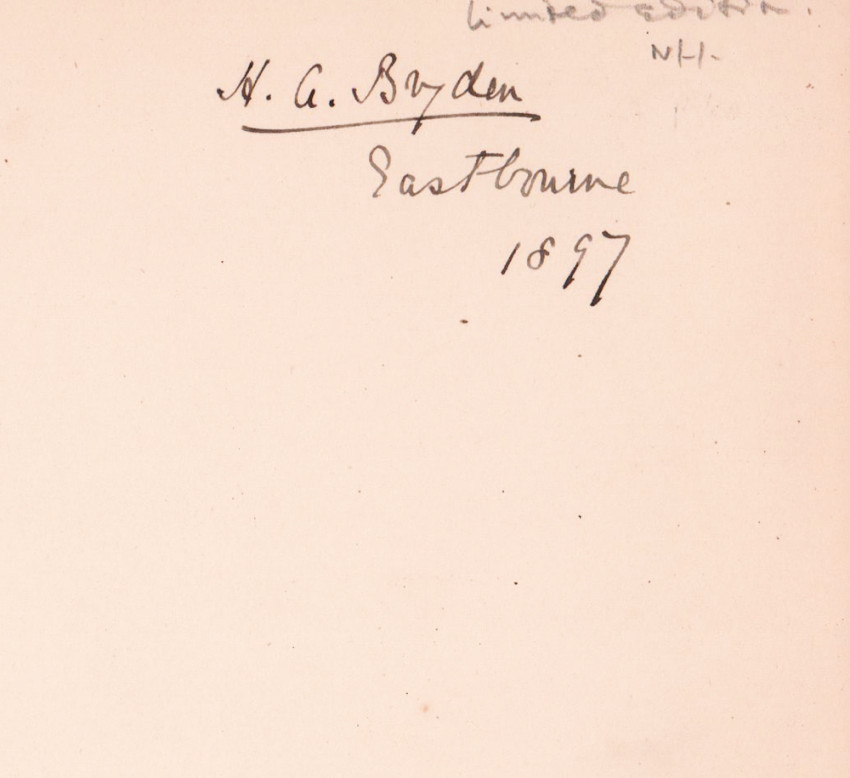 Limited edition.
N.H.
H. A. Bryden
Eastbourne
1897